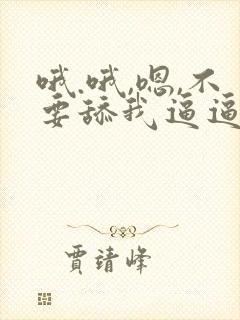 哦.哦,嗯,不
要舔我逼逼
贾靖峰